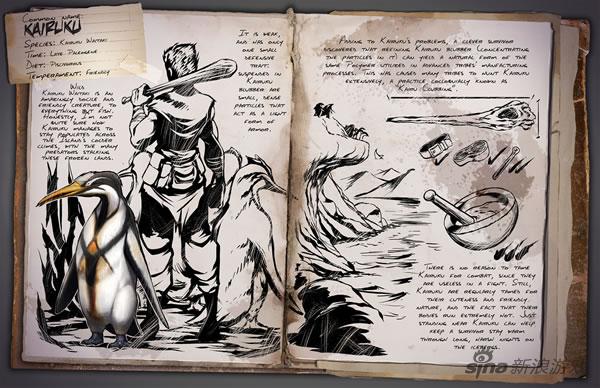 Common Name
KAIRUKU
Species: Kairuku Waitaki
Time: Late Paleogene
Diet: Piscivorous
Temperament: Friendly
Wild
Kairuku Waitaki is an
amazingly docile and
friendly creature, to
everything but fish.
Honestly, I'm not
quite sure how
Kairuku manages to
stay populated across
the Island's colder
climes, with the many
predators stalking
these frozen lands.
It is weak,
and has only
one small
defensive
trait:
suspended in
Kairuku
blubber are
small, dense
particles that
act as a light
form of
armor.
Adding to Kairuku's problems, a clever survivor
discovered that refining Kairuku blubber (concentrating
the particles in it) can yield a natural form of the
same Polymer utilized in advanced tribes' manufacturing
processes. This has caused many tribes to hunt Kairuku
extensively, a practice colloquially known as
"Kairu Clubbing".
There is no reason to tame
Kairuku for combat, since they
are useless in a fight. Still,
Kairuku are regularly tamed for
their cuteness and friendly
nature, and the fact that their
bodies run extremely hot. Just
standing near Kairuku can help
keep a survivor stay warm
through long, harsh nights on
the icebergs.
sina 新浪游戏